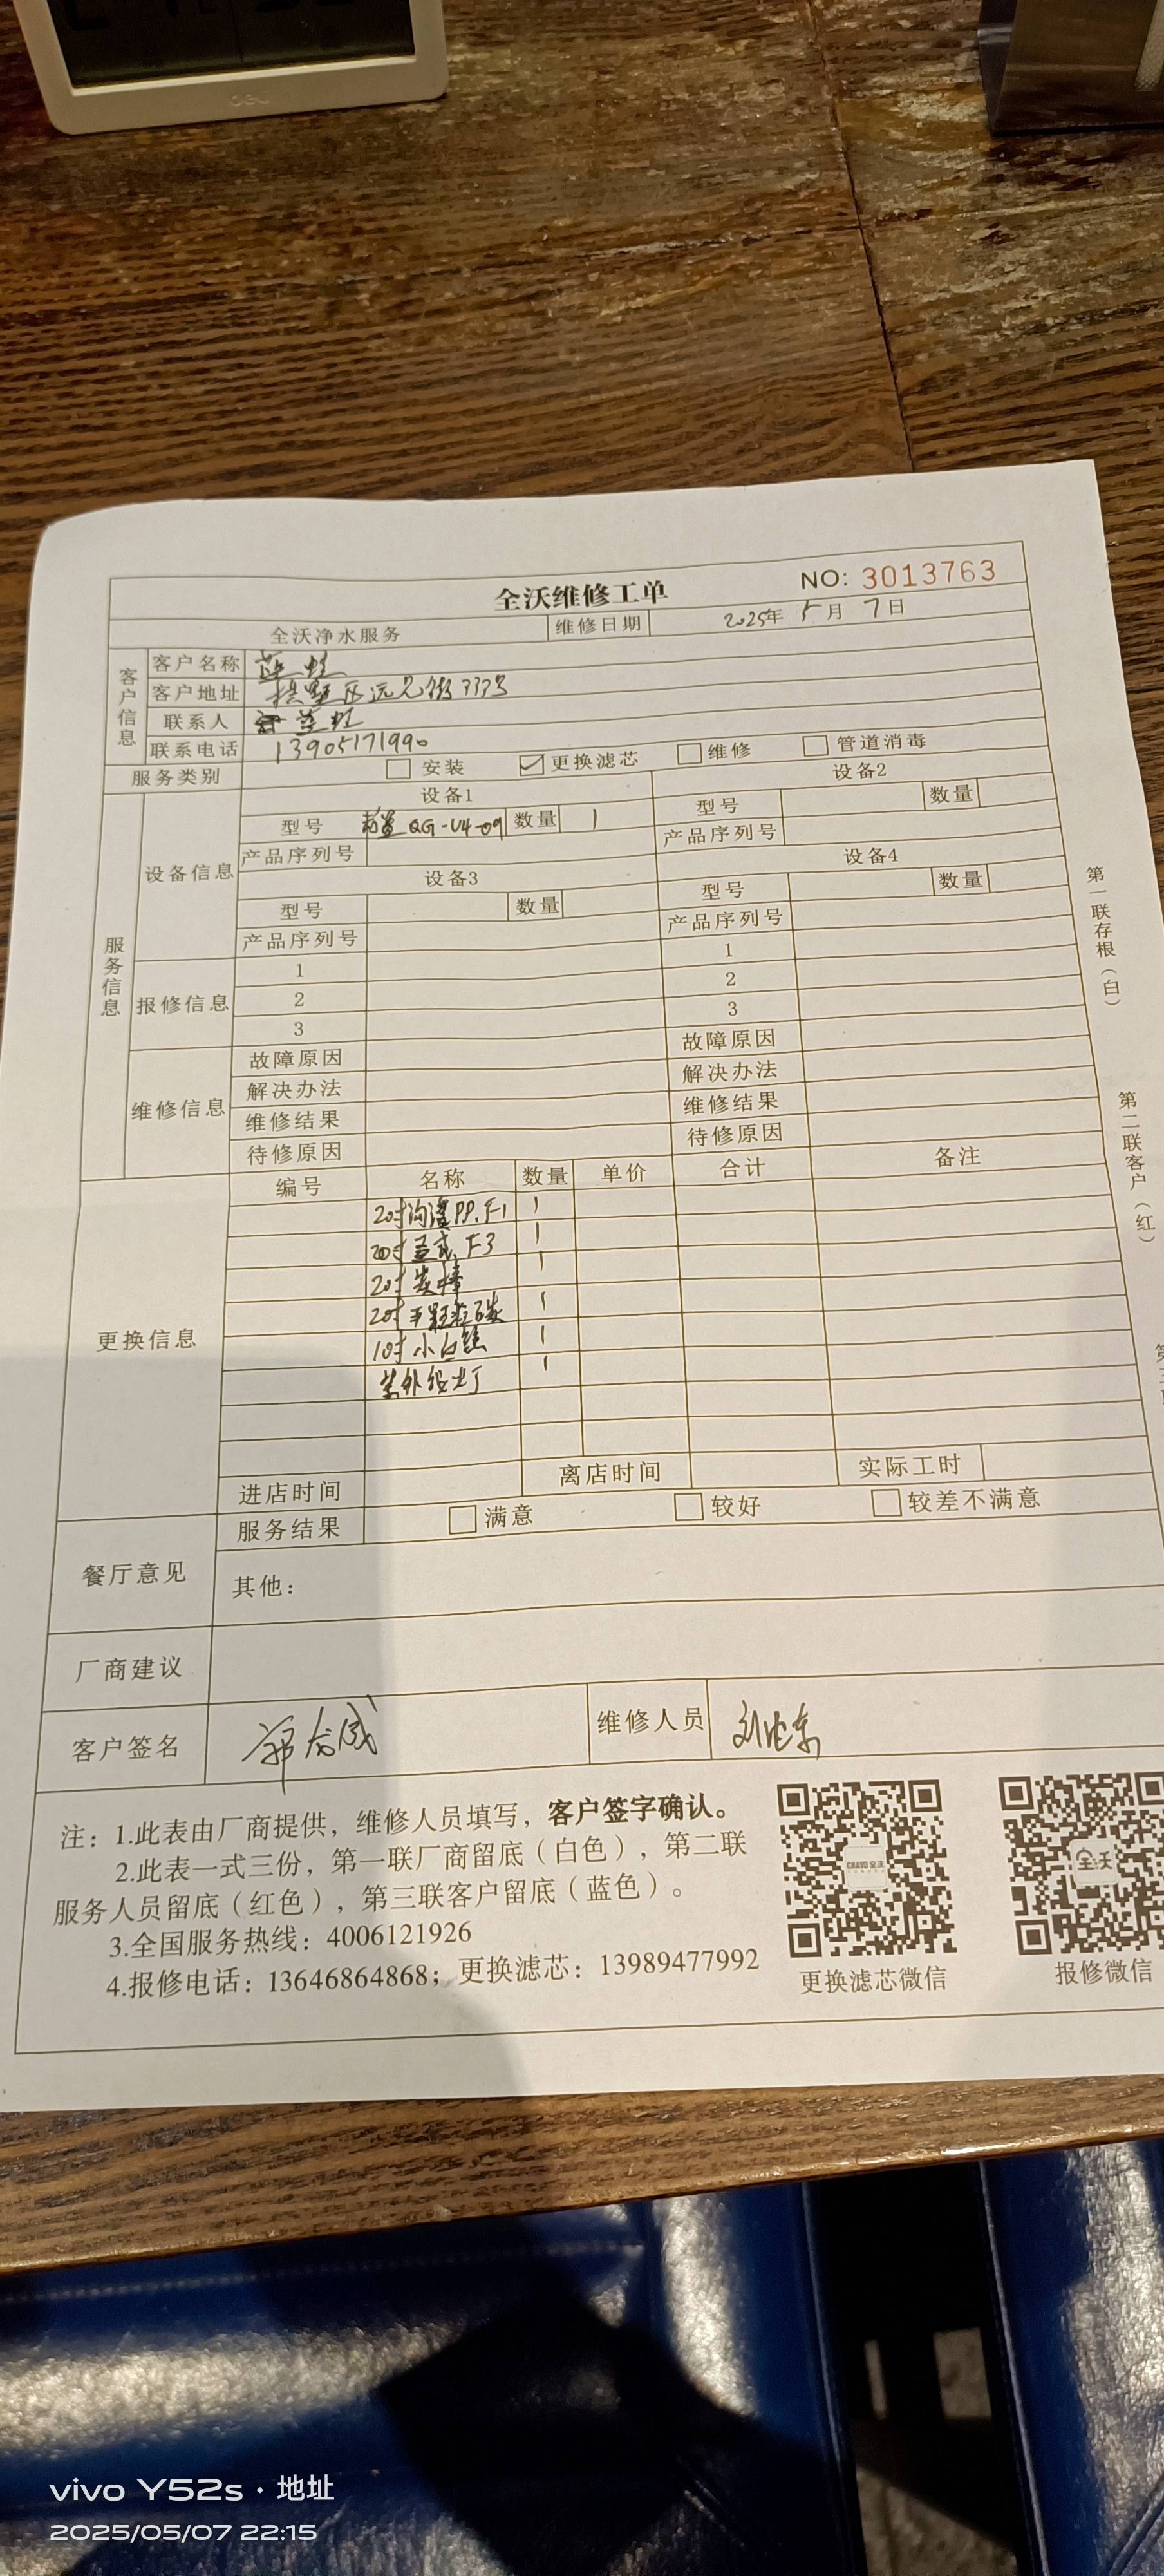 全沃维修工单
NO: 3013763
全沃净水服务 维修日期 2025年 5月 7日
客户信息
客户名称
客户地址 拱墅区远见街777号
联系人
联系电话 13905171990
服务类别 安装 更换滤芯 维修 管道消毒
服务信息
设备信息
设备1 设备2
型号 前置 QG-U4-09 数量 1 型号 数量
产品序列号 产品序列号
设备3 设备4
型号 数量 型号 数量
产品序列号 产品序列号
报修信息
1 1
2 2
3 3
维修信息
故障原因 故障原因
解决办法 解决办法
维修结果 维修结果
待修原因 待修原因
更换信息
编号 名称 数量 单价 合计 备注
20寸沟渠PP.F1 1
20寸 F3 1
20寸炭棒 1
20寸 1
10寸小白 1
紫外线灯 1
进店时间 离店时间 实际工时
餐厅意见
服务结果 满意 较好 较差不满意
其他：
厂商建议
客户签名 维修人员
注：1.此表由厂商提供，维修人员填写，客户签字确认。
2.此表一式三份，第一联厂商留底（白色），第二联
服务人员留底（红色），第三联客户留底（蓝色）。
3.全国服务热线：4006121926
4.报修电话：13646864868；更换滤芯：13989477992
全沃
更换滤芯微信 报修微信
第一联存根（白）
第二联客户（红）
vivo Y52s · 地址
2025/05/07 22:15